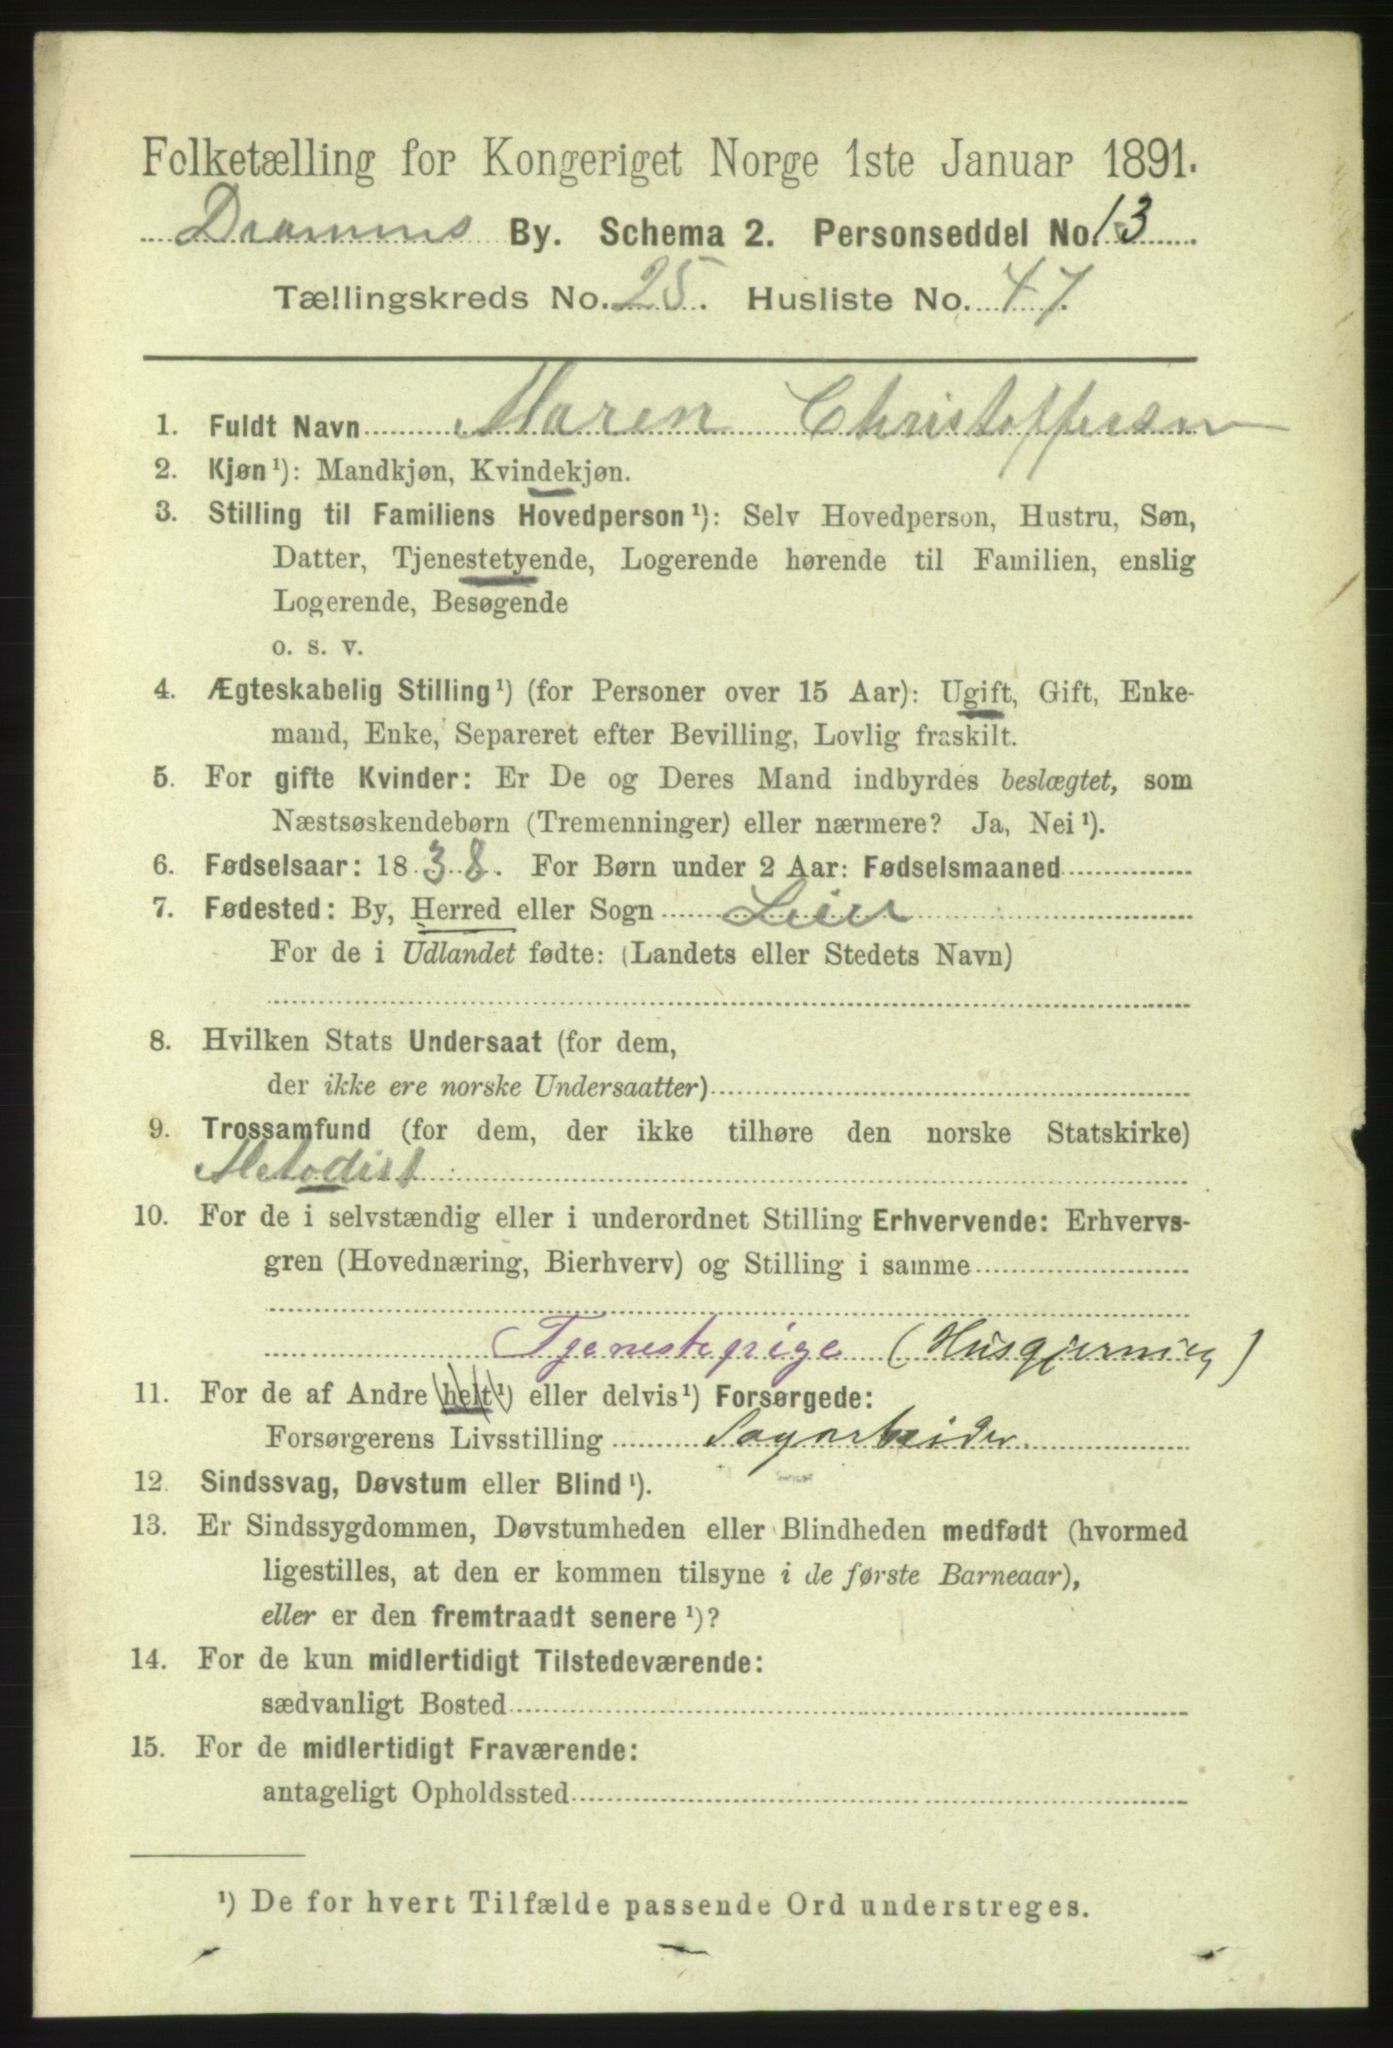 Folketælling for Kongeriget Norge 1ste Januar 1891.
Drammens By. Schema 2. Personseddel No. 13
Tællingskreds No. 25. Husliste No. 47.
1. Fuldt Navn Maren Christoffersen
2. Kjøn¹): Mandkjøn, Kvindekjøn.
3. Stilling til Familiens Hovedperson¹): Selv Hovedperson, Hustru, Søn,
Datter, Tjenestetyende, Logerende hørende til Familien, enslig
Logerende, Besøgende
o. s. v.
4. Ægteskabelig Stilling¹) (for Personer over 15 Aar): Ugift, Gift, Enke-
mand, Enke, Separeret efter Bevilling, Lovlig fraskilt.
5. For gifte Kvinder: Er De og Deres Mand indbyrdes beslægtet, som
Næstsøskendebørn (Tremenninger) eller nærmere? Ja, Nei¹).
6. Fødselsaar: 1838. For Børn under 2 Aar: Fødselsmaaned
7. Fødested: By, Herred eller Sogn Leier
For de i Udlandet fødte: (Landets eller Stedets Navn)
8. Hvilken Stats Undersaat (for dem,
der ikke ere norske Undersaatter)
9. Trossamfund (for dem, der ikke tilhøre den norske Statskirke)
Metodist
10. For de i selvstændig eller i underordnet Stilling Erhvervende: Erhvervs-
gren (Hovednæring, Bierhverv) og Stilling i samme
Tjenestepige (Husgjerning)
11. For de af Andre (helt¹) eller delvis¹) Forsørgede:
Forsørgerens Livsstilling Sagarbeider
12. Sindssvag, Døvstum eller Blind¹).
13. Er Sindssygdommen, Døvstumheden eller Blindheden medfødt (hvormed
ligestilles, at den er kommen tilsyne i de første Barneaar),
eller er den fremtraadt senere¹)?
14. For de kun midlertidigt Tilstedeværende:
sædvanligt Bosted
15. For de midlertidigt Fraværende:
antageligt Opholdssted
¹) De for hvert Tilfælde passende Ord understreges.